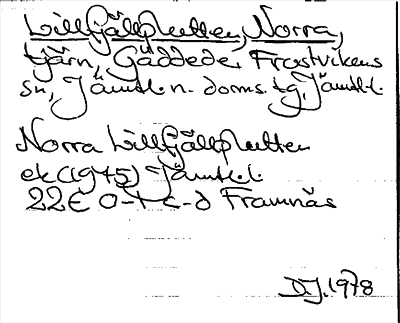 Lillfjällplutten, Norra,
tjärn, Gäddede, Frostvikens
sn, Jämtl. n. doms. tg, Jämtl. l.
Norra Lillfjällplutten
ek (1945) Jämtl. l.
22E 0-1 c-d Framnäs
D.J. 1978